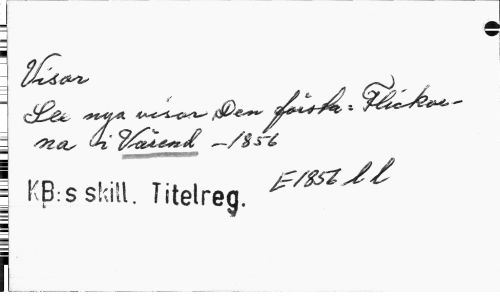 Visor
Sex nya visor Den första: Flickor-
na i Värend –1856
E1856 l l
KB:s skill. Titelreg.